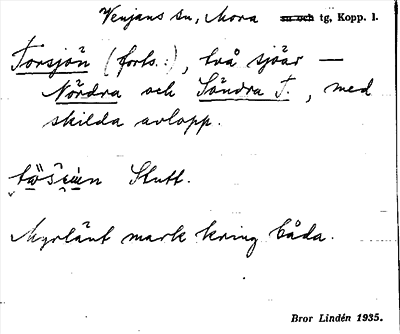 Venjans sn, Mora ~~sn och~~ tg, Kopp. l.
Torsjön (forts.), två sjöar —
Nördra och Söndra T., med
skilda avlopp.
Slutt.
Myrlänt mark kring båda.
Bror Lindén 1935.